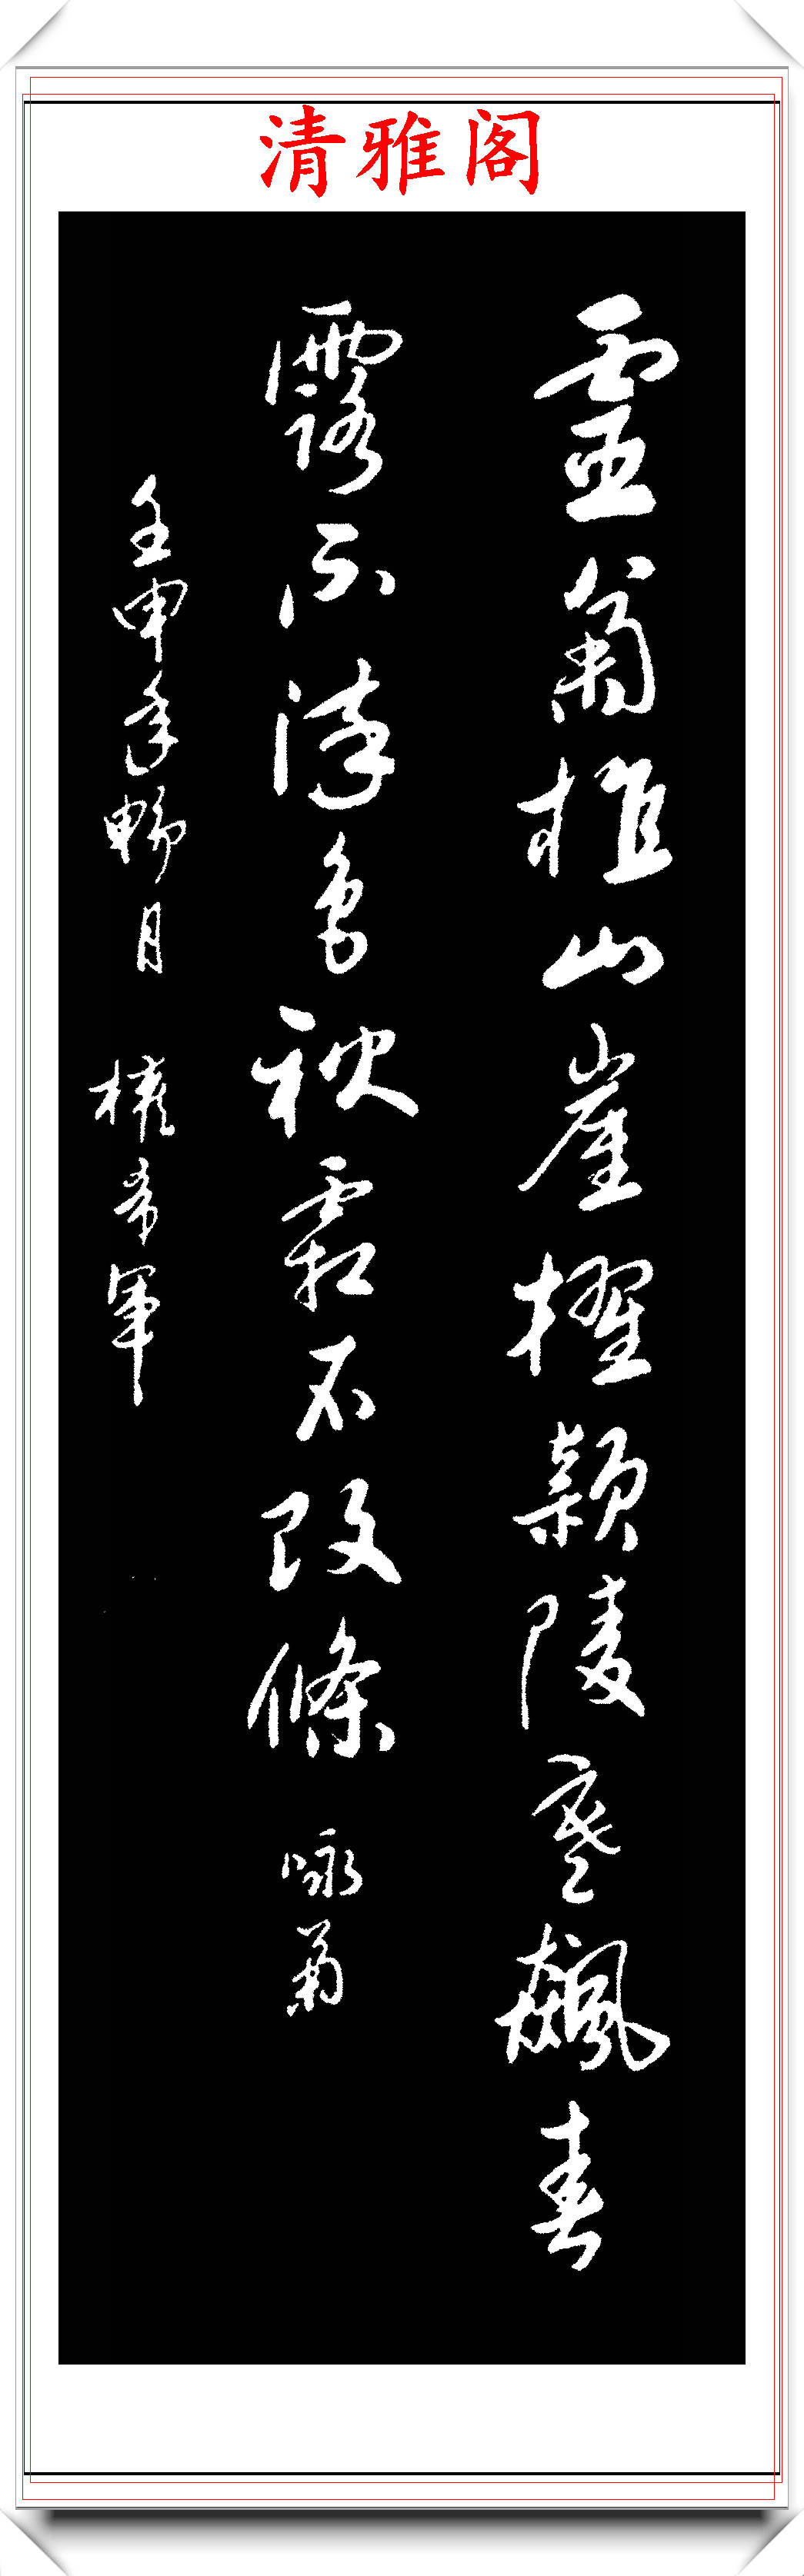 清雅阁
靈菊植山崖擢穎陵寒飆春
露不染色秋霜不改條 咏菊
壬申年暢月 權希軍